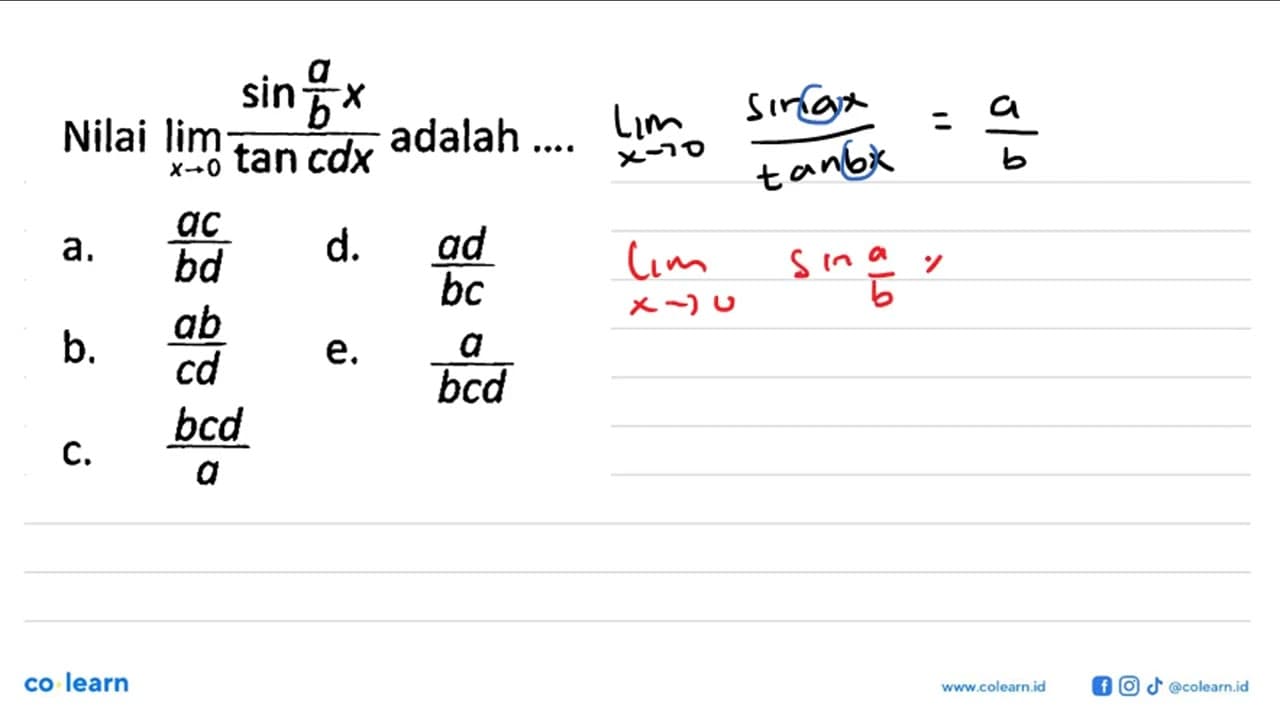 Nilai lim x→0 sin a/b x / tan cdx adalah ....
a. ac/bd
b. ab/cd
c. bcd/a
d. ad/bc
e. a/bcd
lim x→0 sin ax / tan bx = a/b
lim x→0 sin a/b x
co learn
www.colearn.id
@colearn.id